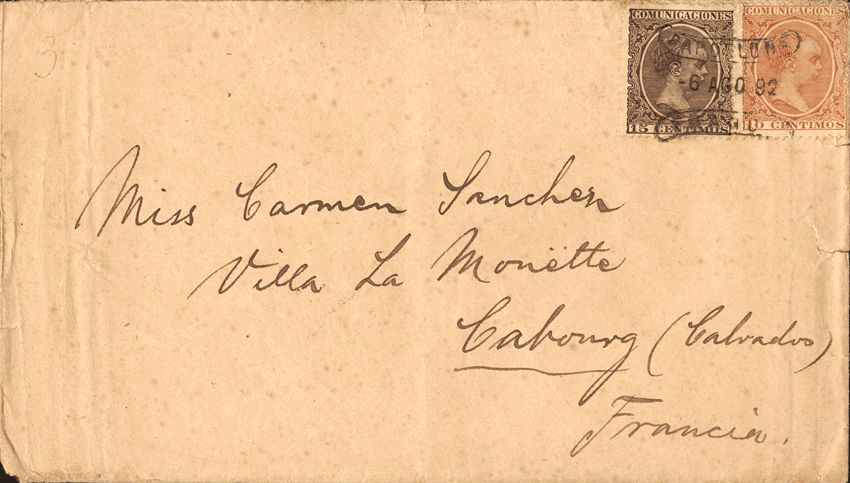 3
COMUNICACIONES COMUNICACIONES
BARCELONA
-6 AGO 92
15 CENTIMOS 10 CENTIMOS
Miss Carmen Sanchez
Villa La Monëtte
Cabourg (Calvados)
Francia.